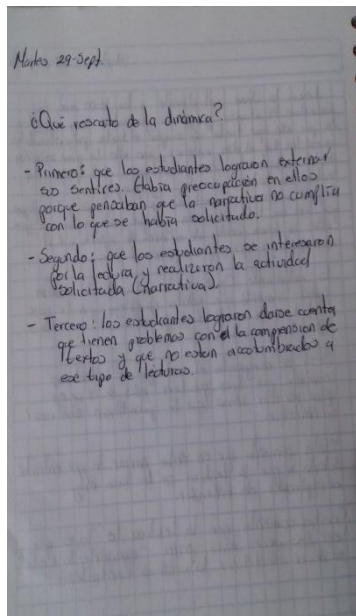 Martes 29-Sept.
¿Qué rescato de la dinámica?
- Primero: que los estudiantes lograron externar
sus sentires. Había preocupación en ellos
porque pensaban que la narrativa no cumplía
con lo que se había solicitado.
- Segundo: que los estudiantes se interesaron
por la lectura, y realizaron la actividad
solicitada (narrativa).
- Tercero: los estudiantes lograron darse cuenta
que tienen problemas con la comprensión de
textos y que no están acostumbrados a
ese tipo de lecturas.